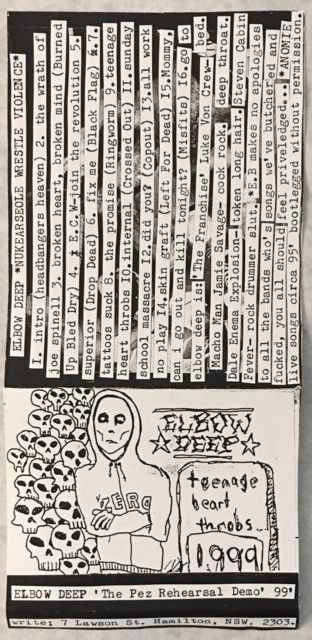 ELBOW DEEP *NUKEARSEOLE WRESTLE VIOLENCE*
I. intro (headbangers heaven) 2. the wrath of
joe spinell 3. broken heart, broken mind (Burned
Up Bled Dry) 4. E.C.W-join the revolution 5.
superior (Drop Dead) 6. fix me (Black Flag) 7.
tattoos suck 8. the promise (Ringworm) 9.teenage
heart throbs IO.internal (Crossed out) II.sunday
school massacre I2.did you? (Copout) I3.all work
no play I4.skin graft (Left For Dead) I5.Mommy,
can i go out and kill tonight? (Misfits) I6.go to
bed.
elbow deep is:'The Franchise' Luke Von Crew-
deep throat.
Macho Man Jamie Savage- cock rock.
Dale Enema Explosion- token long hair. Steven Cabin
Fever- rock drummer slut. *E.B makes no apologies
to all the bands who's songs we've butchered and
fucked, you all should feel priveledged...*ANOMIE
live songs circa 95', bootlegged without permission.
ELBOW
DEEP
ZERO
teenage
heart
throbs...
1999
ELBOW DEEP 'The Pez Rehearsal Demo' 99'
write: 7 Lawson St. Hamilton, NSW, 2303.